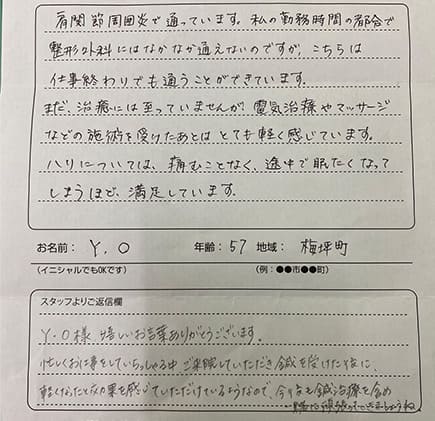 肩関節周囲炎で通っています。私の勤務時間の都合で
整形外科にはなかなか通えないのですが、こちらは
仕事終わりでも通うことができています。
まだ、治癒には至っていませんが、電気治療やマッサージ
などの施術を受けたあとは とても軽く感じています。
ハリについては、痛むことなく、途中で眠たくなって
しまうほど、満足しています。
お名前： Y.O 年齢： 57 地域： 梅坪町
(イニシャルでもOKです) (例：●●市●●町)
スタッフよりご返信欄
Y.O様 嬉しいお言葉ありがとうございます。
忙しくお仕事をしていらっしゃる中 ご来院していただき 鍼を受けた後に
軽くなったと効果を感じていただけているようなので、今後も鍼治療を含め
頑張っていきましょうね。